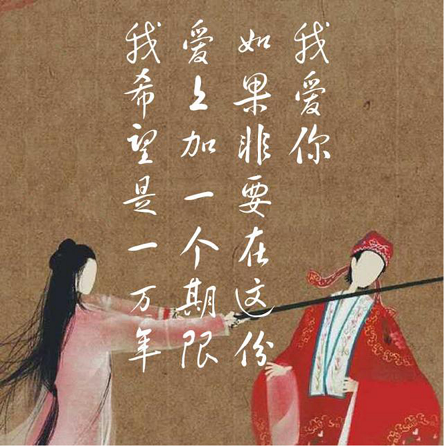 我爱你
如果非要在这份
爱上加一个期限
我希望是一万年